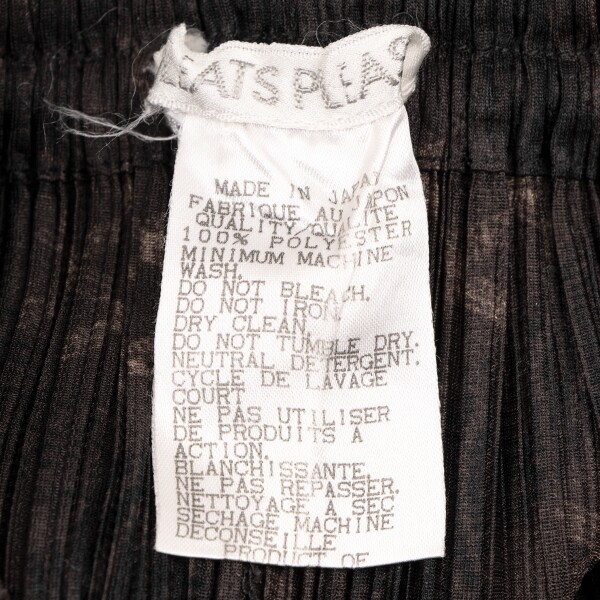 EATS PLEAS
MADE IN JAPAN
FABRIQUE AU JAPON
QUALITY/QUALITE
100% POLYESTER
MINIMUM MACHINE
WASH.
DO NOT BLEACH.
DO NOT IRON.
DRY CLEAN.
DO NOT TUMBLE DRY.
NEUTRAL DETERGENT.
CYCLE DE LAVAGE
COURT
NE PAS UTILISER
DE PRODUITS A
ACTION.
BLANCHISSANTE.
NE PAS REPASSER.
NETTOYAGE A SEC
SECHAGE MACHINE
DECONSEILLE
PRODUCT OF